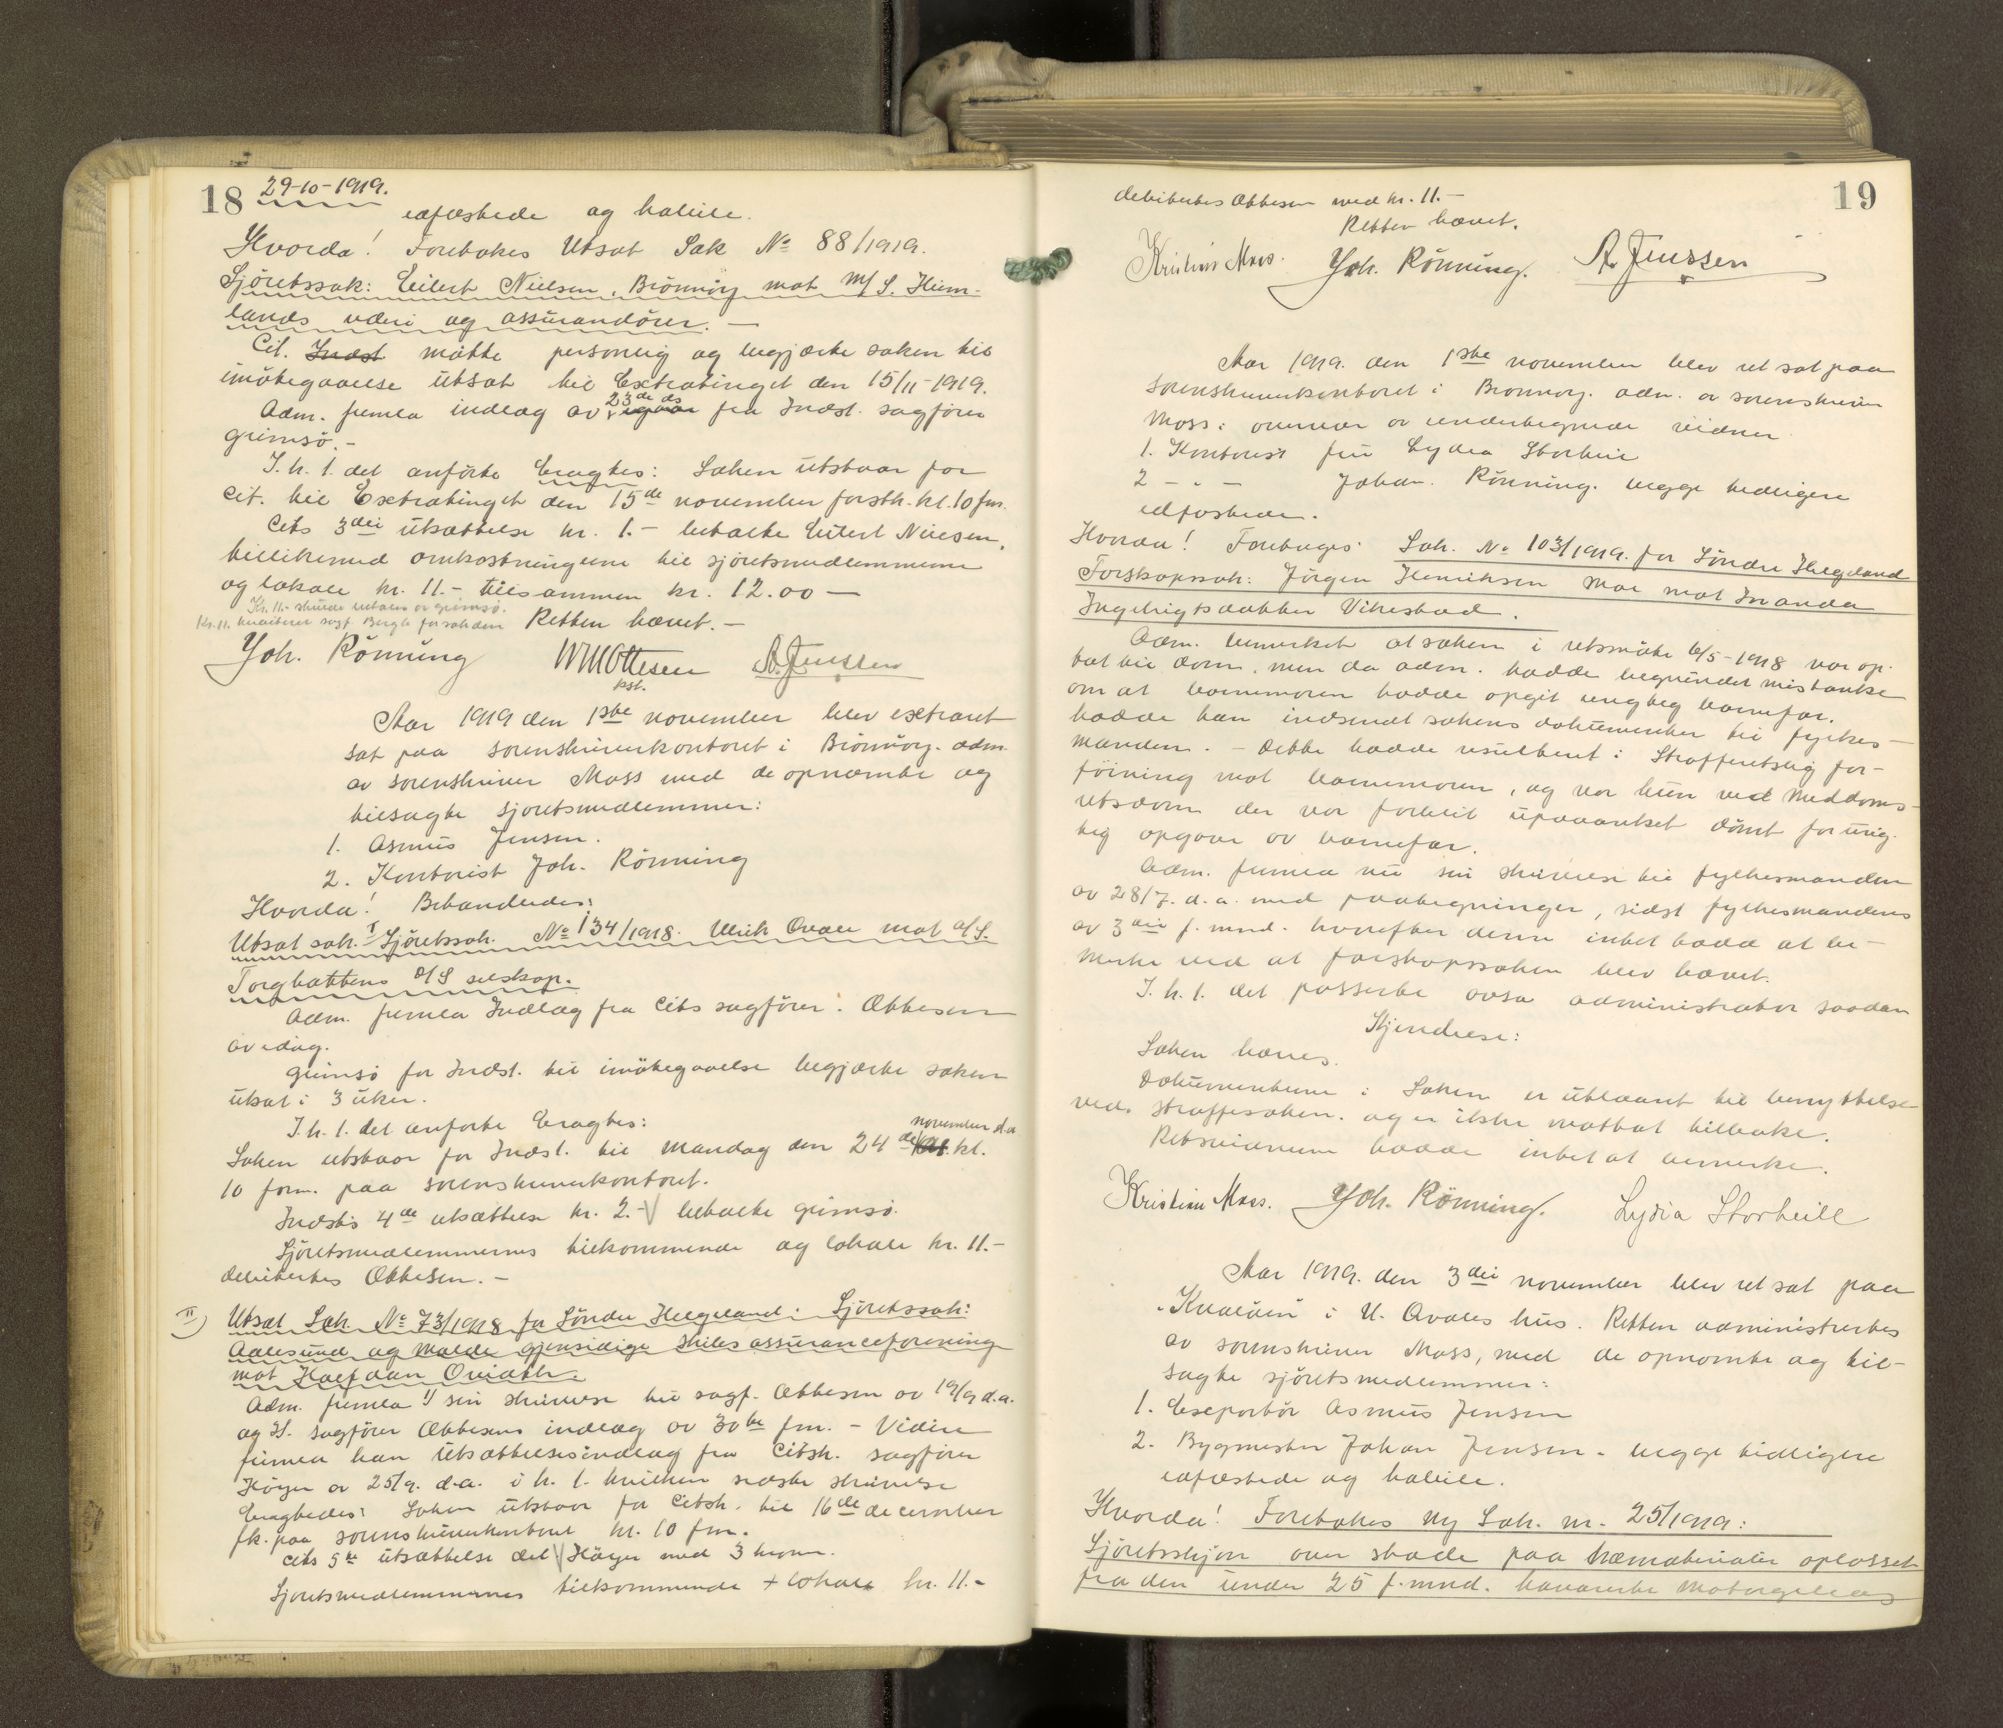 18
29-10-1919.
edfæstede og habile.
Hvorda! Foretokes Utsat Sak No 88/1919.
Sjöretssak: Eilert Nielsen, Brönnöy mot M/S. Heim-
lands rederi og assurandörer. —
Cit. Indst møtte personlig og begjærte saken til
imötegaaelse utsat til Extratinget den 15/11-1919.
23de ds
Adm. fremla indlæg av igaar fra Indst. sagförer
Grimsö. -
I. h. t. det anförte Eragtes: Saken utstaar for
Cit. til Extratinget den 15de november förstk. kl. 10 fm.
Cits 3die utsættelse kr. 1.- betalte Eilert Nielsen,
tillikemed omkostningerne til sjöretsmedlemmerne
og lokale kr. 11.- tilsammen kr. 12.00 —
Kr. 11.- skulde betales av Grimsö.
Kr. 11. krediteres sagf. Bergh for sakden
Retten hævet. -
Joh. Rönning WMOttesen A. Jenssen
kst.
Aar 1919 den 1ste november blev extraret
sat paa sorenskriverkontoret i Brönnöy. adm.
av sorenskriver Moss med de opnævnte og
tilsagte sjöretsmedlemmer:
1. Asmus Jensen.
2. Kontorist Joh. Rönning
Hvorda! Behandledes:
Utsat sak. I Sjöretssak. No 134/1918. Ulrik Qvale mot a/S.
Torghattens D/S selskap.
Adm. fremla Indlæg fra Cits sagförer: Obbesen
av idag.
Grimsö for Indst. til imötegaaelse begjærte saken
utsat i 3 uker.
I. h. t. det anförte Eragtes:
november d.a
Saken utstaar for Indst. til mandag den 24de kl.
10 form. paa sorenskriverkontoret.
Indsts 4de utsættelse kr. 2.- betalte Grimsö.
Sjöretsmedlemmernes tilkommende og lokale kr. 11.-
debitertes Obbesen. -
II) Utsat Sak. No 73/1918 for Söndre Helgeland. Sjöretssak:
Aalesund og Molde gjensidige skibsassuranceforening
mot Halfdan Qviatth.
Adm. fremla 1) sin skrivelse til sagf. Obbesen av 19/9 d.a.
og II. sagförer Obbesens indlæg av 30te f.m. - Videre
fremla han utsættelsesindlæg fra Citsk. sagförer
Höyer av 25/9. d.a. i h. t. hvilken sidste skrivelse
Eragtedes: Saken utstaar for Citsk. til 16de december
fk. paa sorenskriverkontoret kl. 10 fm.
Cits 5te utsættelse deb Höyer med 3 kroner.
Sjöretsmedlemmernes tilkommende + lokale kr. 11.-
19
debitertes Obbesen med kr. 11.-
Retten hævet.
Kristian Moss. Joh. Rönning. A. Jenssen
Aar 1919. den 1ste november blev ret sat paa
sorenskriverkontoret i Brönnöy. adm. av sorenskriver
Moss: overvær av undertegnede vidner
1. Kontorist frk Lydia Storheill
2 - " - Johan. Rönning. begge tidligere
edfæstede.
Hvorda! Foretoges: Sak. No 103/1919. for Söndre Helgeland
Farskapssak: Jörgen Henriksen Moe mot Inanda
Ingebrigtsdatter Vikestad.
Adm. bemerket at saken i retsmöte 6/5-1918 var op-
tat til dom, men da adm. hadde begrundet mistanke
om at barnemoren hadde opgit urigtig barnefar,
hadde han indsendt sakens dokumenter til fylkes-
manden. - Dette hadde resultert i Strafferetslig for-
föining mot barnemoren, og var hun ved Meddoms-
retsdom der var forblit upaaanket dömt for urig-
tig opgave av barnefar.
Adm. fremla nu sin skrivelse til fylkesmanden
av 28/7. d.a. med paategninger, sidst fylkesmandens
av 3die f. mnd. hvorefter denne intet hadde at be-
merke ved at farskapssaken blev hævet.
I. h. t. det passerte avsa administrator saadan
Kjendelse:
Saken hæves.
Dokumenterne i Saken er utlaant til benyttelse
ved straffesaken. og er ikke mottat tilbake.
Retsvidnerne hadde intet at bemerke.
Kristian Moss. Joh. Rönning. Lydia Storheill
Aar 1919. den 3die november blev ret sat paa
"Kvalöen" i U. Qvales hus. Retten administrertes
av sorenskriver Moss, med de opnævnte og til-
sagte sjöretsmedlemmer:
1. Exportör Asmus Jensen
2. Bygmester Johan Jensen - begge tidligere
edfæstede og habile.
Hvorda! Foretokes Ny Sak. nr. 25/1919:
Sjöretsskjön over skade paa træmaterialer oplosset
fra den under 25 f. mnd. havarerte Motorgaleas